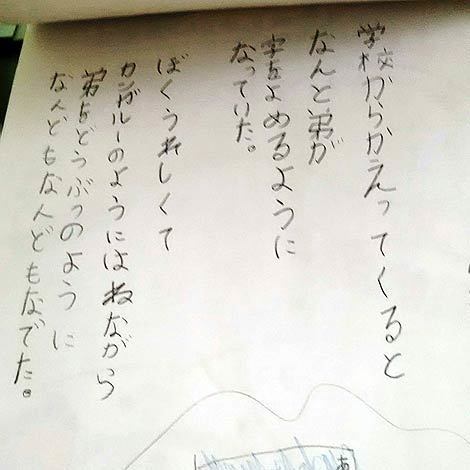 学校からかえってくると
なんと弟が
字をよめるように
なっていた。
ぼくうれしくて
カンガルーのようにはねながら
弟をどうぶつのように
なんどもなんどもなでた。
あ